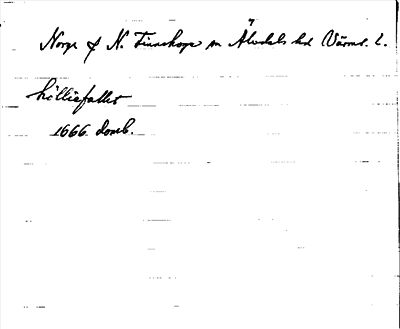 Norge f N. Finnskoga sn Älvdals hd Värml. l.
hölliäfallet
1666 domb.